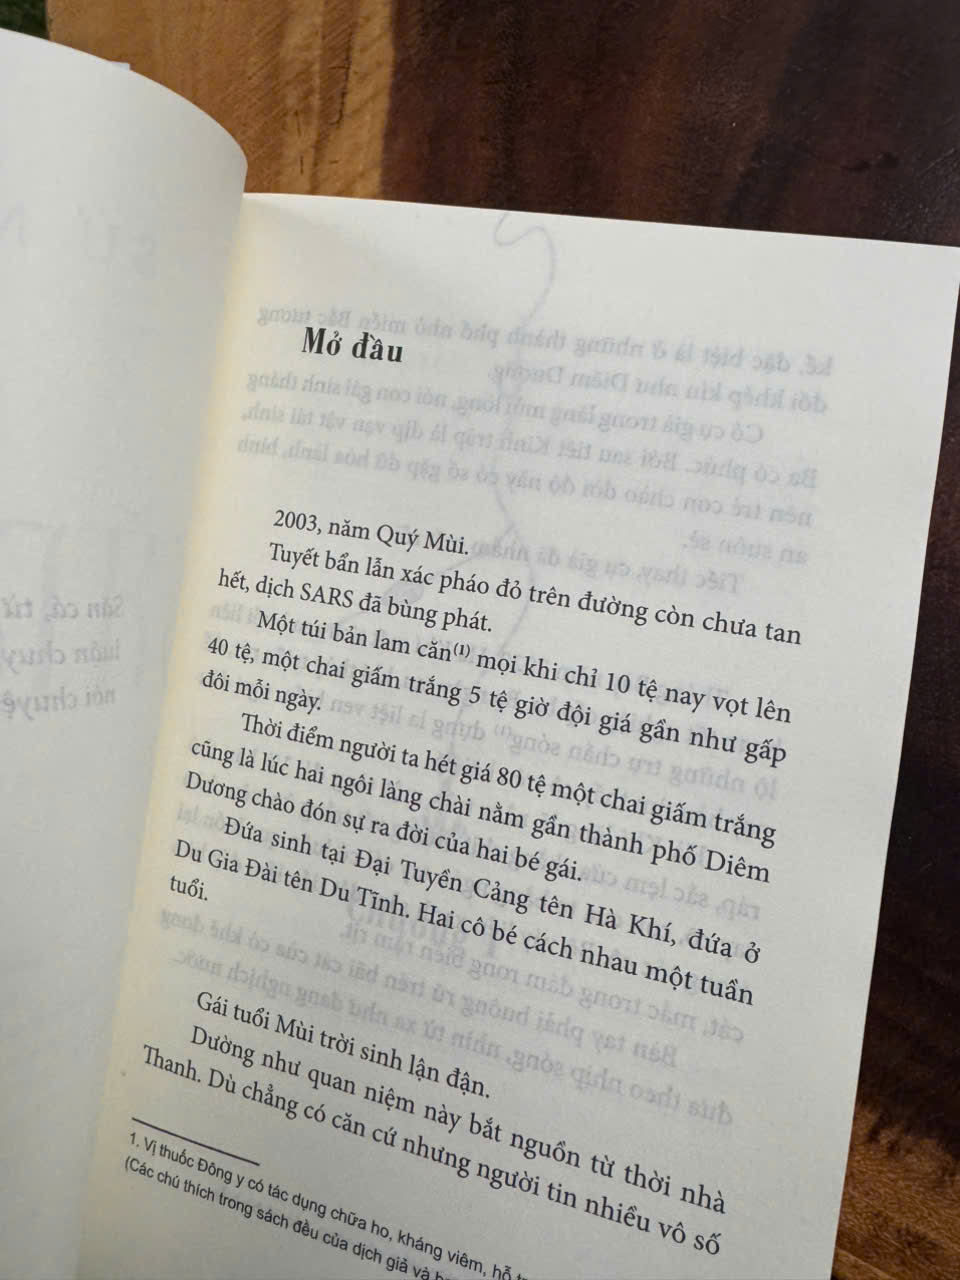 Mở đầu
2003, năm Quý Mùi.
Tuyết bẩn lẫn xác pháo đỏ trên đường còn chưa tan
hết, dịch SARS đã bùng phát.
Một túi bản lam căn(1) mọi khi chỉ 10 tệ nay vọt lên
40 tệ, một chai giấm trắng 5 tệ giờ đội giá gần như gấp
đôi mỗi ngày.
Thời điểm người ta hét giá 80 tệ một chai giấm trắng
cũng là lúc hai ngôi làng chài nằm gần thành phố Diêm
Dương chào đón sự ra đời của hai bé gái.
Đứa sinh tại Đại Tuyền Cảng tên Hà Khí, đứa ở
Du Gia Đài tên Du Tĩnh. Hai cô bé cách nhau một tuần
tuổi.
Gái tuổi Mùi trời sinh lận đận.
Dường như quan niệm này bắt nguồn từ thời nhà
Thanh. Dù chẳng có căn cứ nhưng người tin nhiều vô số
1. Vị thuốc Đông y có tác dụng chữa ho, kháng viêm, hỗ
(Các chú thích trong sách đều của dịch giả và